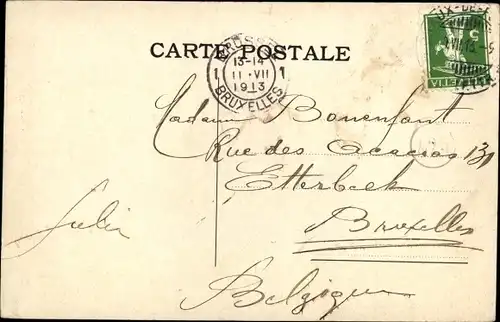 CARTE POSTALE
BRUSSEL
13-14
1 11 · VII 1
1913
BRUXELLES
HELVETIA
Madame Bonenfant
Rue des Acacias 31
Etterbeek
Bruxelles
Belgique
Julia